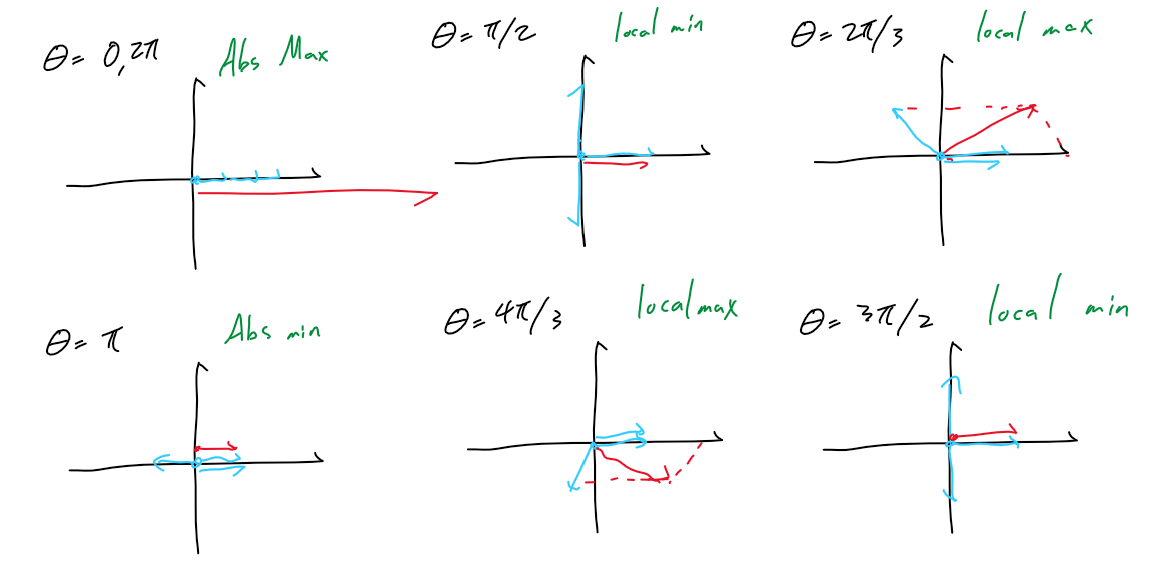 θ= 0,2π Abs Max
θ= π/2 local min
θ= 2π/3 local max
θ= π Abs min
θ= 4π/3 local max
θ= 3π/2 local min